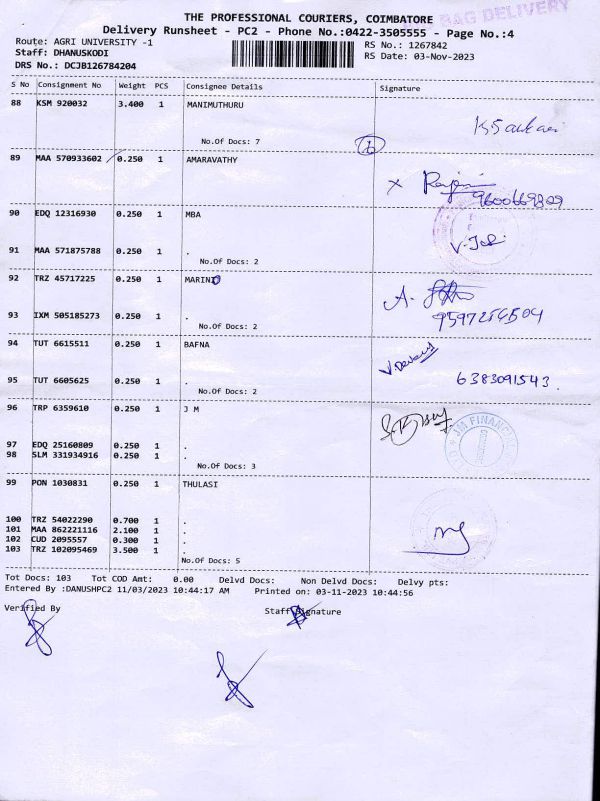 THE PROFESSIONAL COURIERS, COIMBATORE
BAG DELIVERY
Delivery Runsheet - PC2 - Phone No.:0422-3505555 - Page No.:4
Route: AGRI UNIVERSITY -1 RS No.: 1267842
Staff: DHANUSKODI RS Date: 03-Nov-2023
DRS No.: DCJB126784204
S No Consignment No Weight PCS Consignee Details Signature
88 KSM 920032 3.400 1 MANIMUTHURU
No.Of Docs: 7
89 MAA 570933602 0.250 1 AMARAVATHY
9600669809
90 EDQ 12316930 0.250 1 MBA
91 MAA 571875788 0.250 1 .
No.Of Docs: 2
92 TRZ 45717225 0.250 1 MARINO
93 IXM 505185273 0.250 1 .
No.Of Docs: 2
94 TUT 6615511 0.250 1 BAFNA
95 TUT 6605625 0.250 1 . 6383091543
No.Of Docs: 2
96 TRP 6359610 0.250 1 J M
JM FINANCIAL
97 EDQ 25160809 0.250 1 .
98 SLM 331934916 0.250 1 .
No.Of Docs: 3
99 PON 1030831 0.250 1 THULASI
100 TRZ 54022290 0.700 1 .
101 MAA 862221116 2.100 1 .
102 CUD 2095557 0.300 1 .
103 TRZ 102095469 3.500 1 .
No.Of Docs: 5
Tot Docs: 103 Tot COD Amt: 0.00 Delvd Docs: Non Delvd Docs: Delvy pts:
Entered By :DANUSHPC2 11/03/2023 10:44:17 AM Printed on: 03-11-2023 10:44:56
Verified By Staff Signature